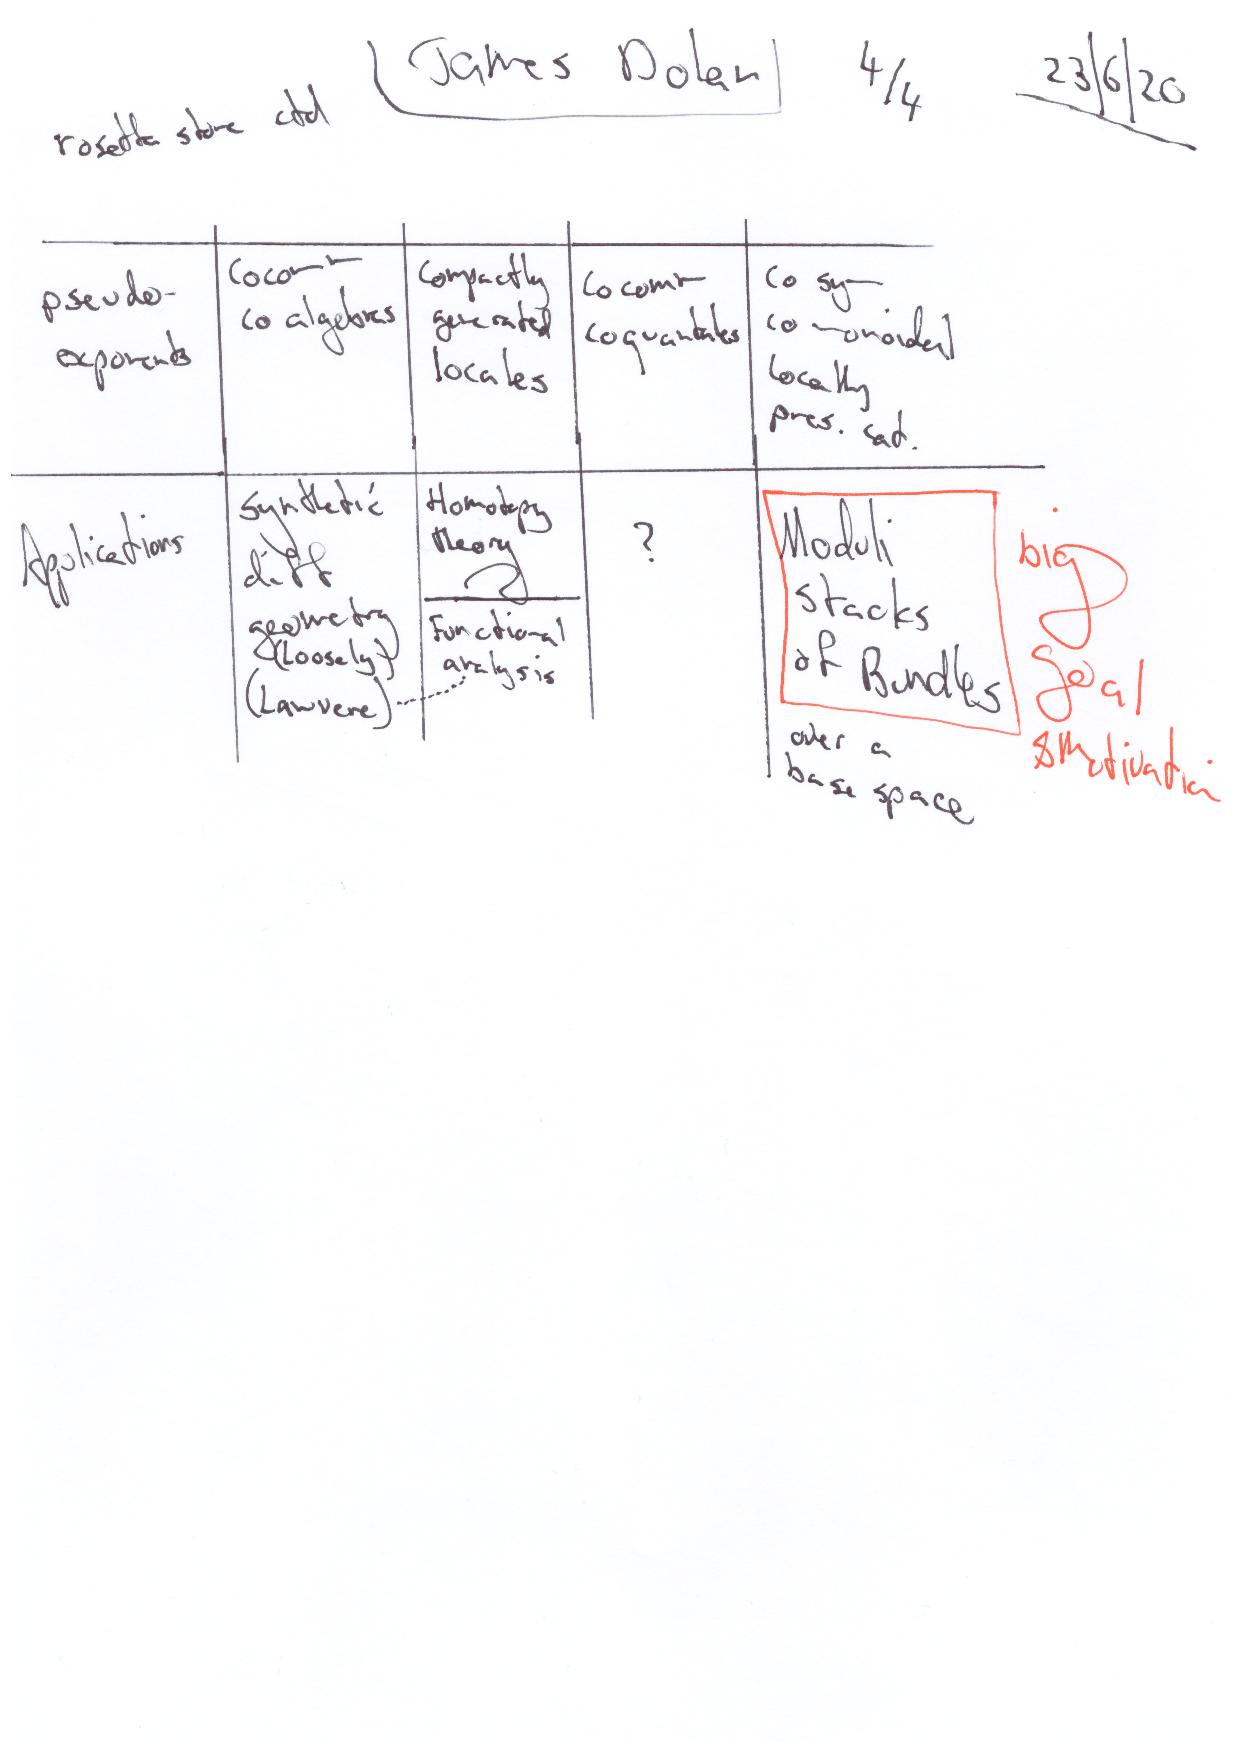 James Dolan
4/4
23/6/20
rosetta stone ctd
pseudo-
exponents
Cocomm
coalgebras
Compactly
generated
locales
Cocomm
coquantales
Co sym
co monoidal
locally
pres. cat.
Applications
Synthetic
diff
geometry
(Loosely)
(Lawvere)
Homotopy
theory
Functional
analysis
?
Moduli
stacks
of Bundles
over a
base space
big
goal
& Motivation